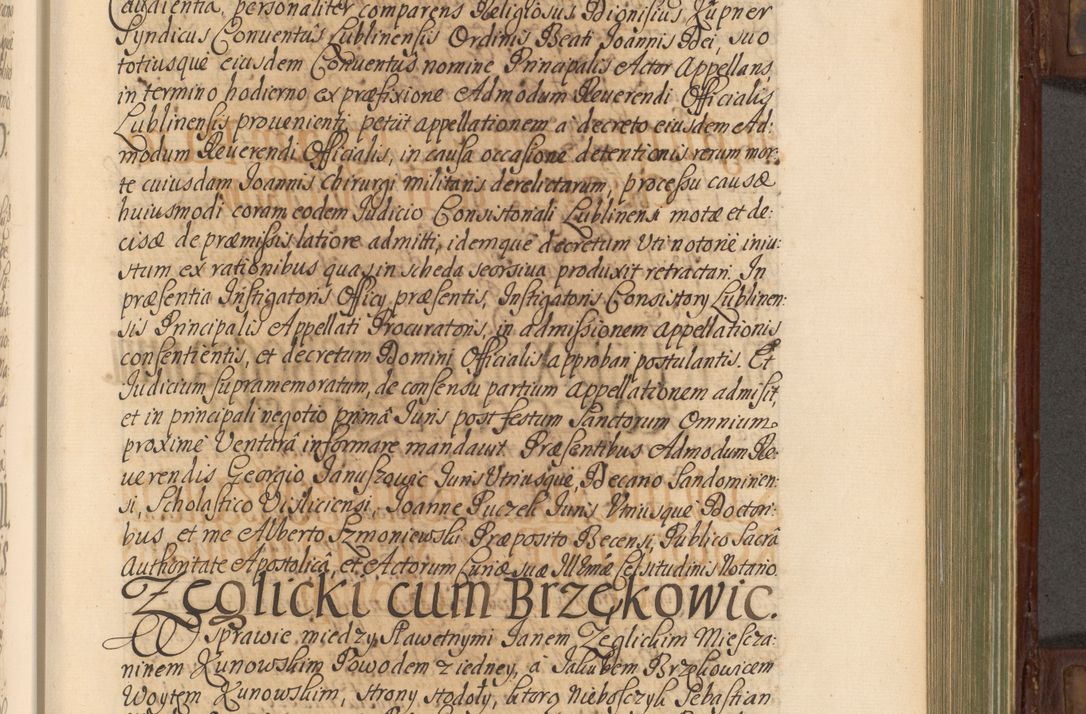 Caudientia, personaliter comparens Religiosus Dionisius Kupner
Syndicus Conuentus Lublinensis Ordinis Beati Joannis Dei, suo
totiusque eiusdem Conuentus nomine Principalis Actor Appellans
in termino hodierno ex præfixione Admodum Reuerendi Officialis
Lublinensis prouenienti petiit appellationem a decreto eiusdem Ad:
modum Reuerendi Officialis, in causa occasione detentionis rerum mor:
te cuiusdam Joannis Chirurgi militaris derelictarum, processu causæ
huiusmodi coram eodem Judicio Consistoriali Lublinensi motæ et de:
cisæ de præmissis latiore admitti, idemque decretum Uti notorie iniu:
stum ex rationibus quas in scheda seorsiua produxit retractari. In
præsentia Instigatoris Officy præsentis, Instigatoris Consistory Lublinen:
sis Principalis Appellati Procuratoris, in admissionem appellationis
consentientis, et decretum Domini Officialis approbari postulantis. Et
Judicium supramemoratum, de consensu partium appellationem admisit,
et in principali negotio primâ Juris post festum Sanctorum Omnium
proximè Venturâ informare mandauit. Præsentibus Admodum Re:
uerendis Georgio Januszowic Juris Utriusque, Decano Sandominen:
si, Scholastico Visliciensi, Joanne Puczek Juris Utriusque Doctori:
bus, et me Alberto Szmoniewski Præposito Becensi, Publico Sacrâ
Authoritate Apostolicâ, et Actorum Curiæ suæ Illmæ Celsitudinis Notario.
Zęglicki cum Brzękowic.
W Sprawie, miedzy Sławetnymi Janem Zęglickim Miescza:
ninem Kunowskim Powodem z iedney, a Jakubem Brzękowicem
Woytem Kunowskim, strony stodoły, ktorą Nieboszczyk Sebastian